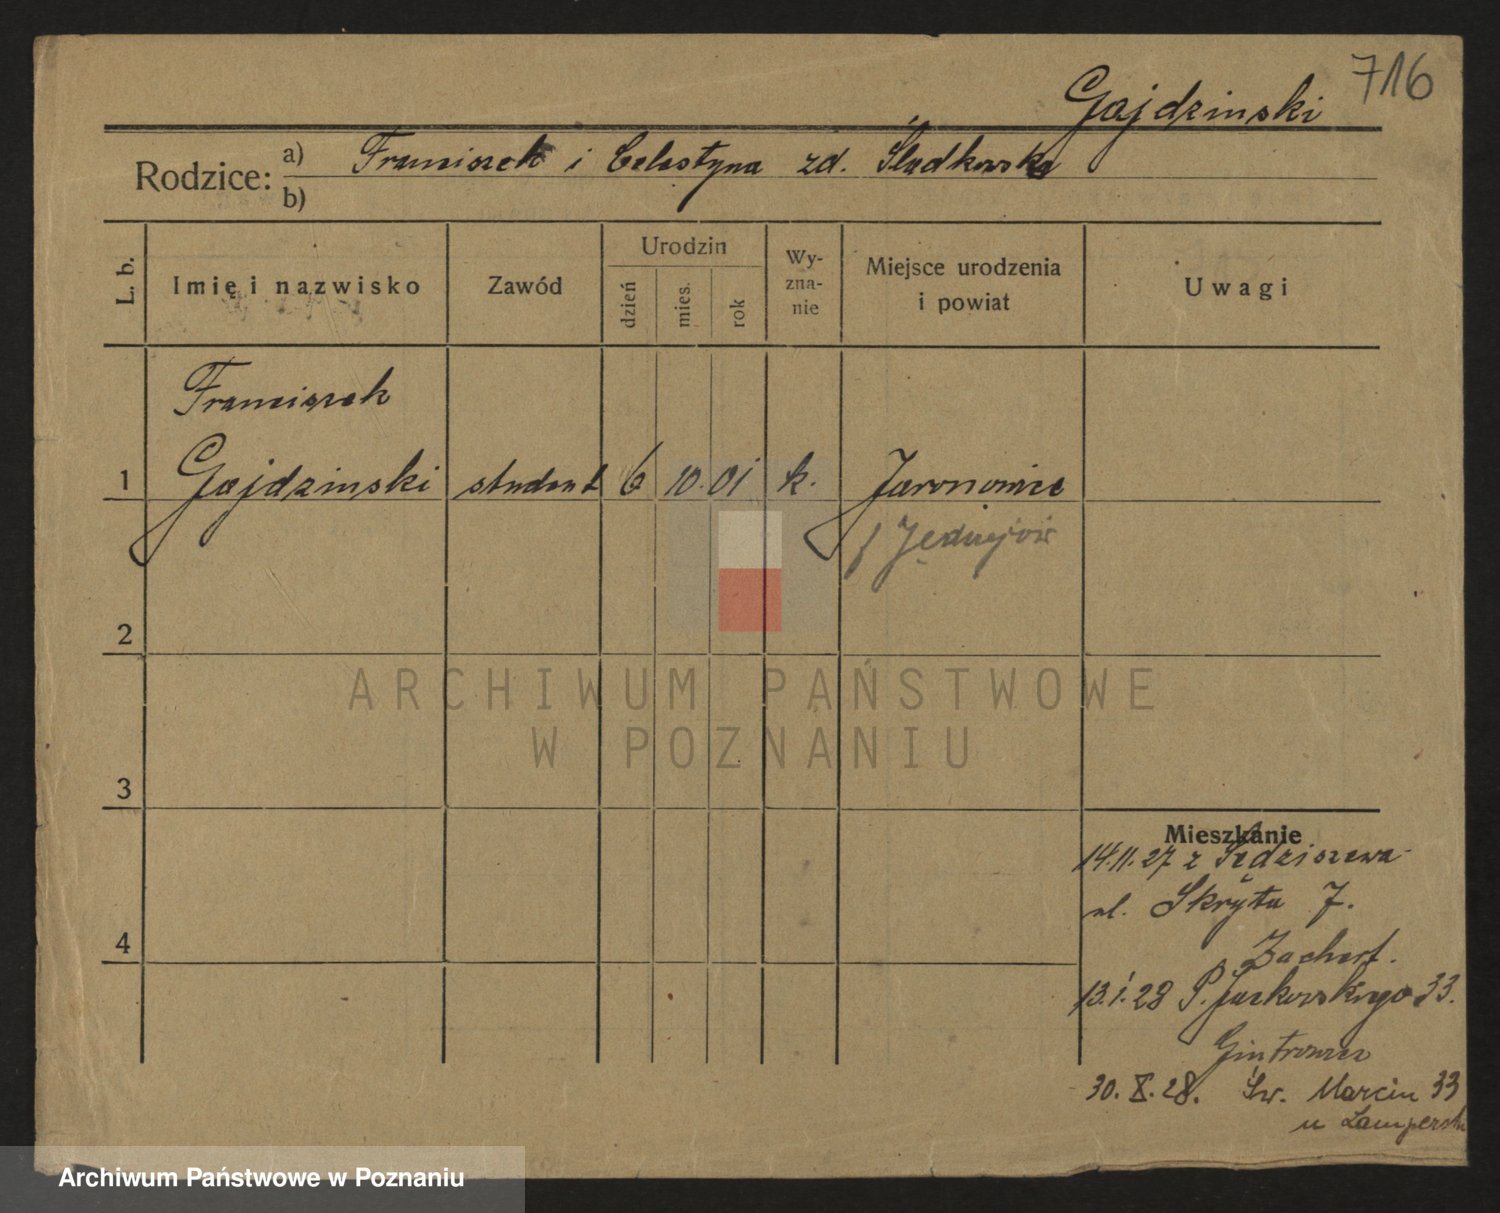 716
Gajdzinski
Rodzice: a) Franciszek i Celestyna zd. Śladkowska
b)
L. b. Imię i nazwisko Zawód Urodzin dzień mies. rok Wy-zna-nie Miejsce urodzenia i powiat Uwagi
Franciszek
1 Gajdzinski student 6 10. 01 k. Jaronowice
/ Jędrzejów
2
ARCHIWUM PAŃSTWOWE
W POZNANIU
3
Mieszkanie
14.11.27 z Sędziszewa
ul. Skryta 7.
4
Zachert.
13.1.28 P. Jackowskiego 33.
30. X. 28. Św. Marcin 33
u
Archiwum Państwowe w Poznaniu